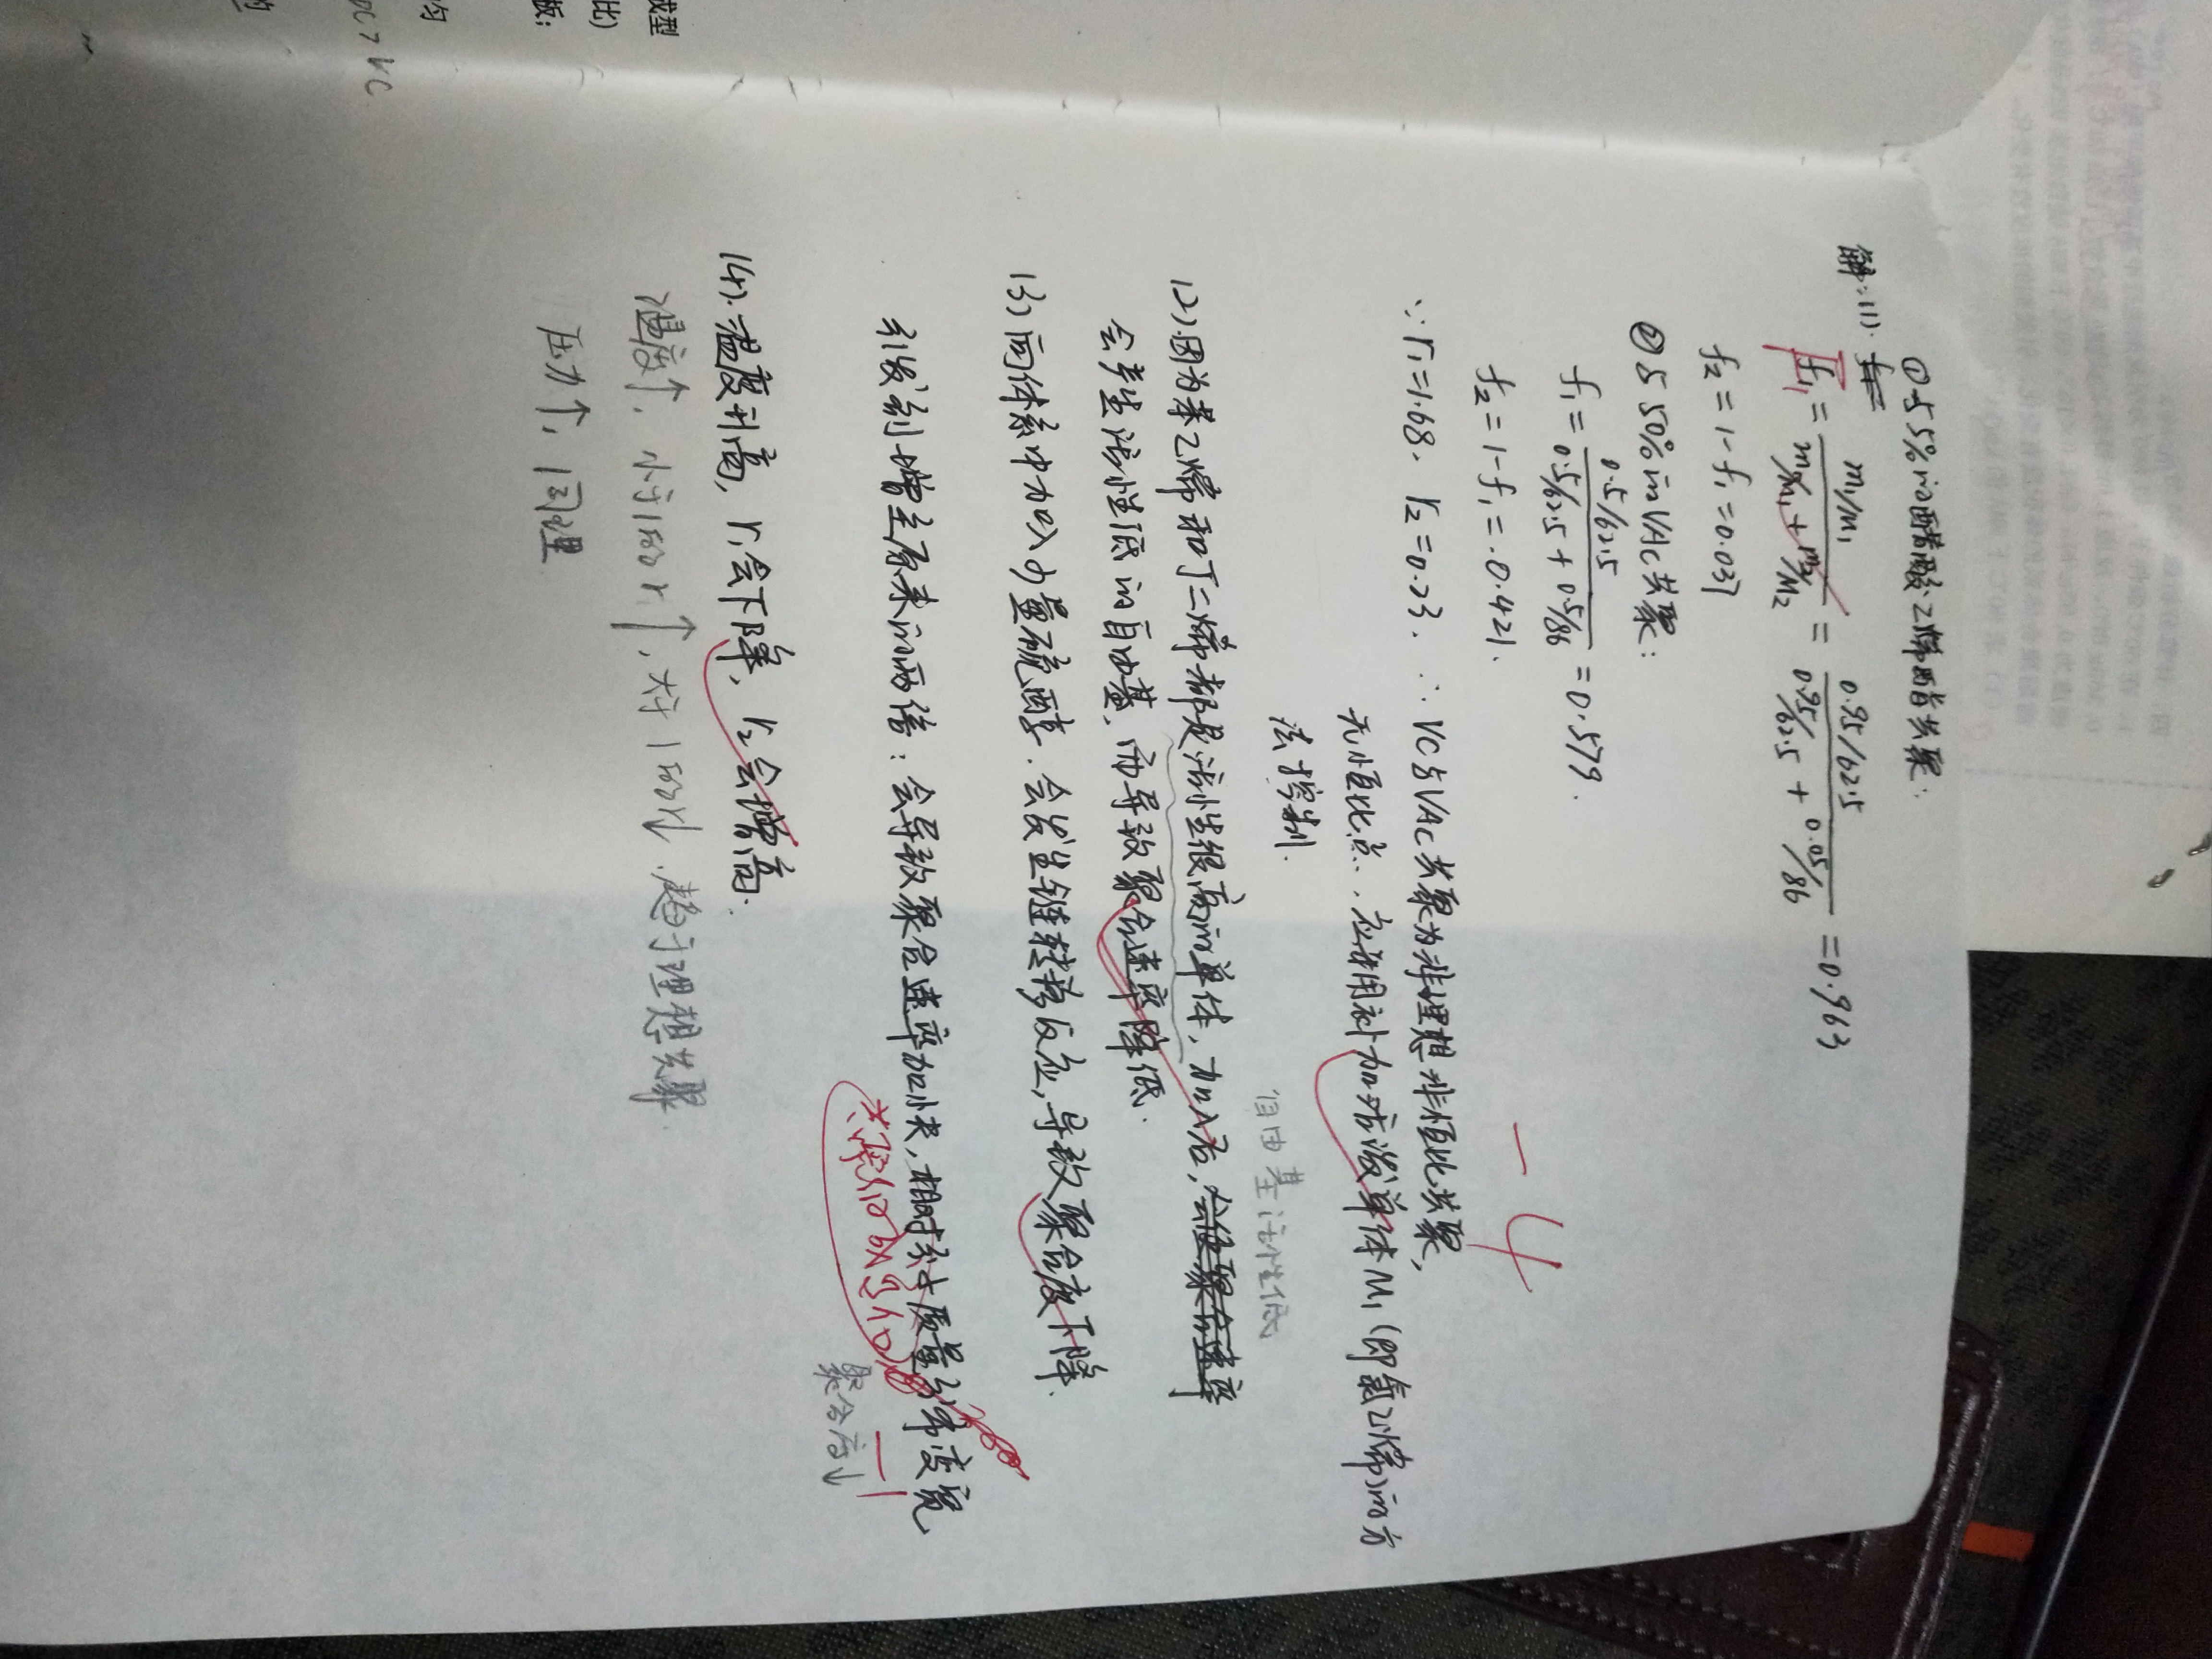 解:(1).
①与5%的醋酸乙烯酯共聚:
f₁ = m₁/M₁ / (m₁/M₁ + m₂/M₂) = 0.95/62.5 / (0.95/62.5 + 0.05/86) = 0.963
f₂ = 1-f₁ = 0.037
②与50%的VAc共聚:
f₁ = 0.5/62.5 / (0.5/62.5 + 0.5/86) = 0.579.
f₂ = 1-f₁ = 0.421.
-4
∵ r₁=1.68. r₂=0.23. ∴ VC与VAc共聚为非理想非恒比共聚,
无恒比点. 应用补加活泼单体M₁(即氯乙烯)的方
法控制.
自由基活性低
(2).因为苯乙烯和丁二烯都是活性很高的单体, 加入后, 会使聚合速率
会产生活性低的自由基, 而导致聚合速率降低.
(3)向体系中加入少量硫醇. 会发生链转移反应, 导致聚合度下降.
引发剂增至原来的两倍: 会导致聚合速率加快, 相对分子质量分布变宽
聚合度↓
(4).温度升高, r₁会下降, r₂会增高.
温度↑, 小于1的r₁↑, 大于1的↓. 趋于理想共聚
压力↑, 同理
成型
比)
板:
均
VC